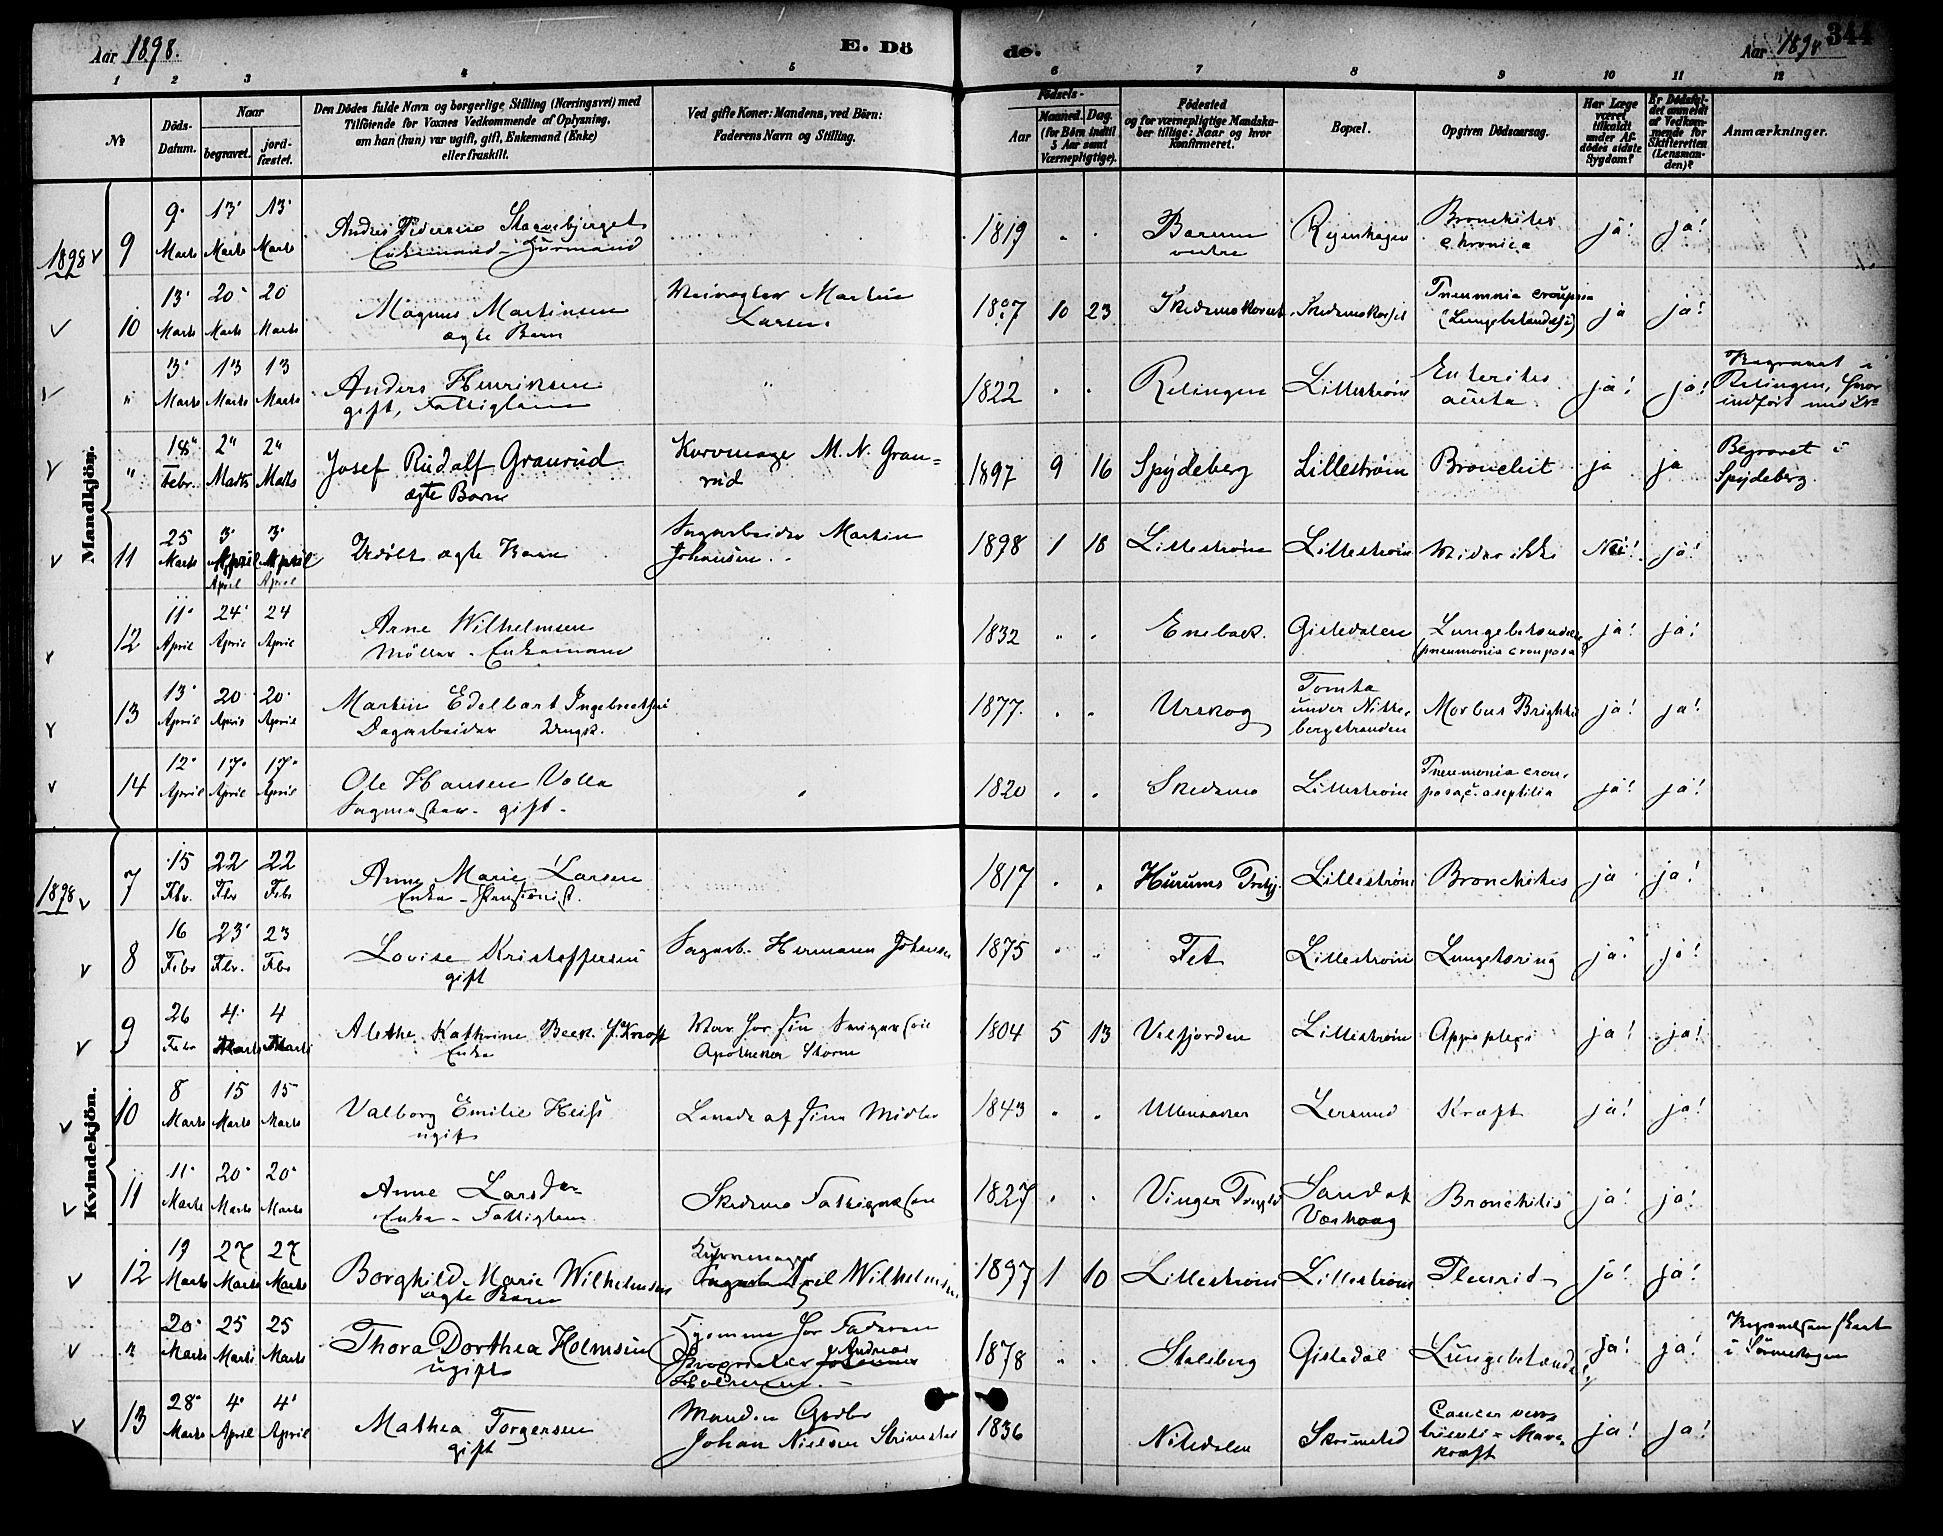 Aar 1898.
E. Dö
de.
Aar 1898
344
1 2 3 4 5 6 7 8 9 10 11 12
No
Döds-
Datum.
Naar
begravet.
jord-
fæstet.
Den Dödes fulde Navn og borgerlige Stilling (Næringsvei) med
Tilföiende for Voxnes Vedkommende af Oplysning,
om han (hun) var ugift, gift, Enkemand (Enke)
eller fraskilt.
Ved gifte Koner: Mandens, ved Börn:
Faderens Navn og Stilling.
Födsels-
Aar
Maaned. Dag.
(for Börn indtil
5 Aar samt
Værnepligtige).
Födested
og for værnepligtige Mandska-
ber tillige: Naar og hvor
konfirmeret.
Bopæl.
Opgiven Dödsaarsag.
Har Læge
været
tilkaldt
under Af-
dödes sidste
Sygdom?
Er Dödsfal-
det anmeldt
af Vedkom-
mende for
Skifteretten
(Lensman-
den)?
Anmærkninger.
Mandkjön.
1898 9 9 Marts 13 Marts 13 Marts
Enkemand
1819 Bærum
Bronchites
chronica ja! ja!
10 13 Marts 20 Marts 20 Marts Magnus Martinsen
ægte Barn
Martin
Larsen.
1897 10 23 Skedsmokorset Skedsmokorset Pneumnia crouposa
(Lungebetændelse) ja ja!
" 3 Marts 13 Marts 13 Marts Anders Henriksen
gift, Fattiglem
" 1822 Relingen Lillestrøm Enterites
acuta ja! ja!
Begravet i
Relingen, hvor
indført
" 18 Febr. 2 Marts 2 Marts Josef Rudolf Granrud
ægte Barn
Kurvmager M. N. Gran=
rud
1897 9 16 Spydeberg Lillestrøm Bronchit ja ja
Begravet i
Spydeberg.
11 25 Marts 3 April 3 April
April April
Udøbt ægte Barn
Sagarbeider Martin
Johansen.
1898 1 18 Lillestrøm Lillestrøm Vides ikke Nei! ja!
12 11 April 24 April 24 April Arne Wilhelmsen
Møller - Enkemand
1832 Eneback. Gistedalen Lungebetændelse
(pneumonia crouposa) ja! ja!
13 13 April 20 April 20 April Martin Edelbart Ingebrectsen
Dagarbeider Ungk.
1877 Urskog Tomta
under Nitte-
bergstranden
Morbus Brightii ja! ja!
14 12 April 17 April 17 April Ole Hansen Volla
Sagmester - gift -
1820 Skedsmo Lillestrøm Pneumonia crou-
posa ja! ja!
Kvindekjön.
1898 7 15 Fbr. 22 Fbr 22 Febr Anne Marie Larsen
Enke - Pensionist.
1817 Hurums Prstgj. Lillestrøm Bronchites ja ja!
8 16 Febr 23 Fbr. 23 Febr Lovise Kristoffersen
gift
Sagarb. Hermann Johansen
1875 Fet Lillestrøm Lungetæring ja! ja!
9 26 Febr 4 Marts 4 Marts Alethe Kathrine Beck f. Krafft
Enke
Var hos sin Svigersøn
Apotheker Storm
1804 5 13 Velfjorden Lillestrøm Appoplexi ja! ja!
10 8 Marts 15 Marts 15 Marts Valborg Emilie Heiss
ugift
Levede af sine Midler
1843 Ullensaker Lersund Kræft ja! ja!
11 11 Marts 20 Marts 20 Marts Anne Larsdtr
Enke - Fattiglem.
Skedsmo Fattigvæsen
1827 Vinger Prstgjd Sandok
Vestvaag
Bronchitis ja! ja!
12 19 Marts 27 Marts 27 Marts Borghild Marie Wilhelmsen
ægte Barn
Kurvmager
Sagarb. Axel Wilhelmsen
1897 1 10 Lillestrøm Lillestrøm Pleurit ja! ja!
" 20 Marts 25 Marts 25 Marts Thora Dorthea Holmsen
ugift
Hjemme hos Faderen
Proprietær Andreas Johannes
Holmsen.
1878 Stalsberg Gistedal Lungebetændelse ja! ja!
Begravelsen skeet
i Sørumskogen
13 28 Marts 4 April 4 April Mathea Torgersen
gift
Manden Gdbr
Johan Nielsen Skrimstad
1836 Nitedalen Skrimstad Cancer ventriculi - Mave-
kræft ja! ja!